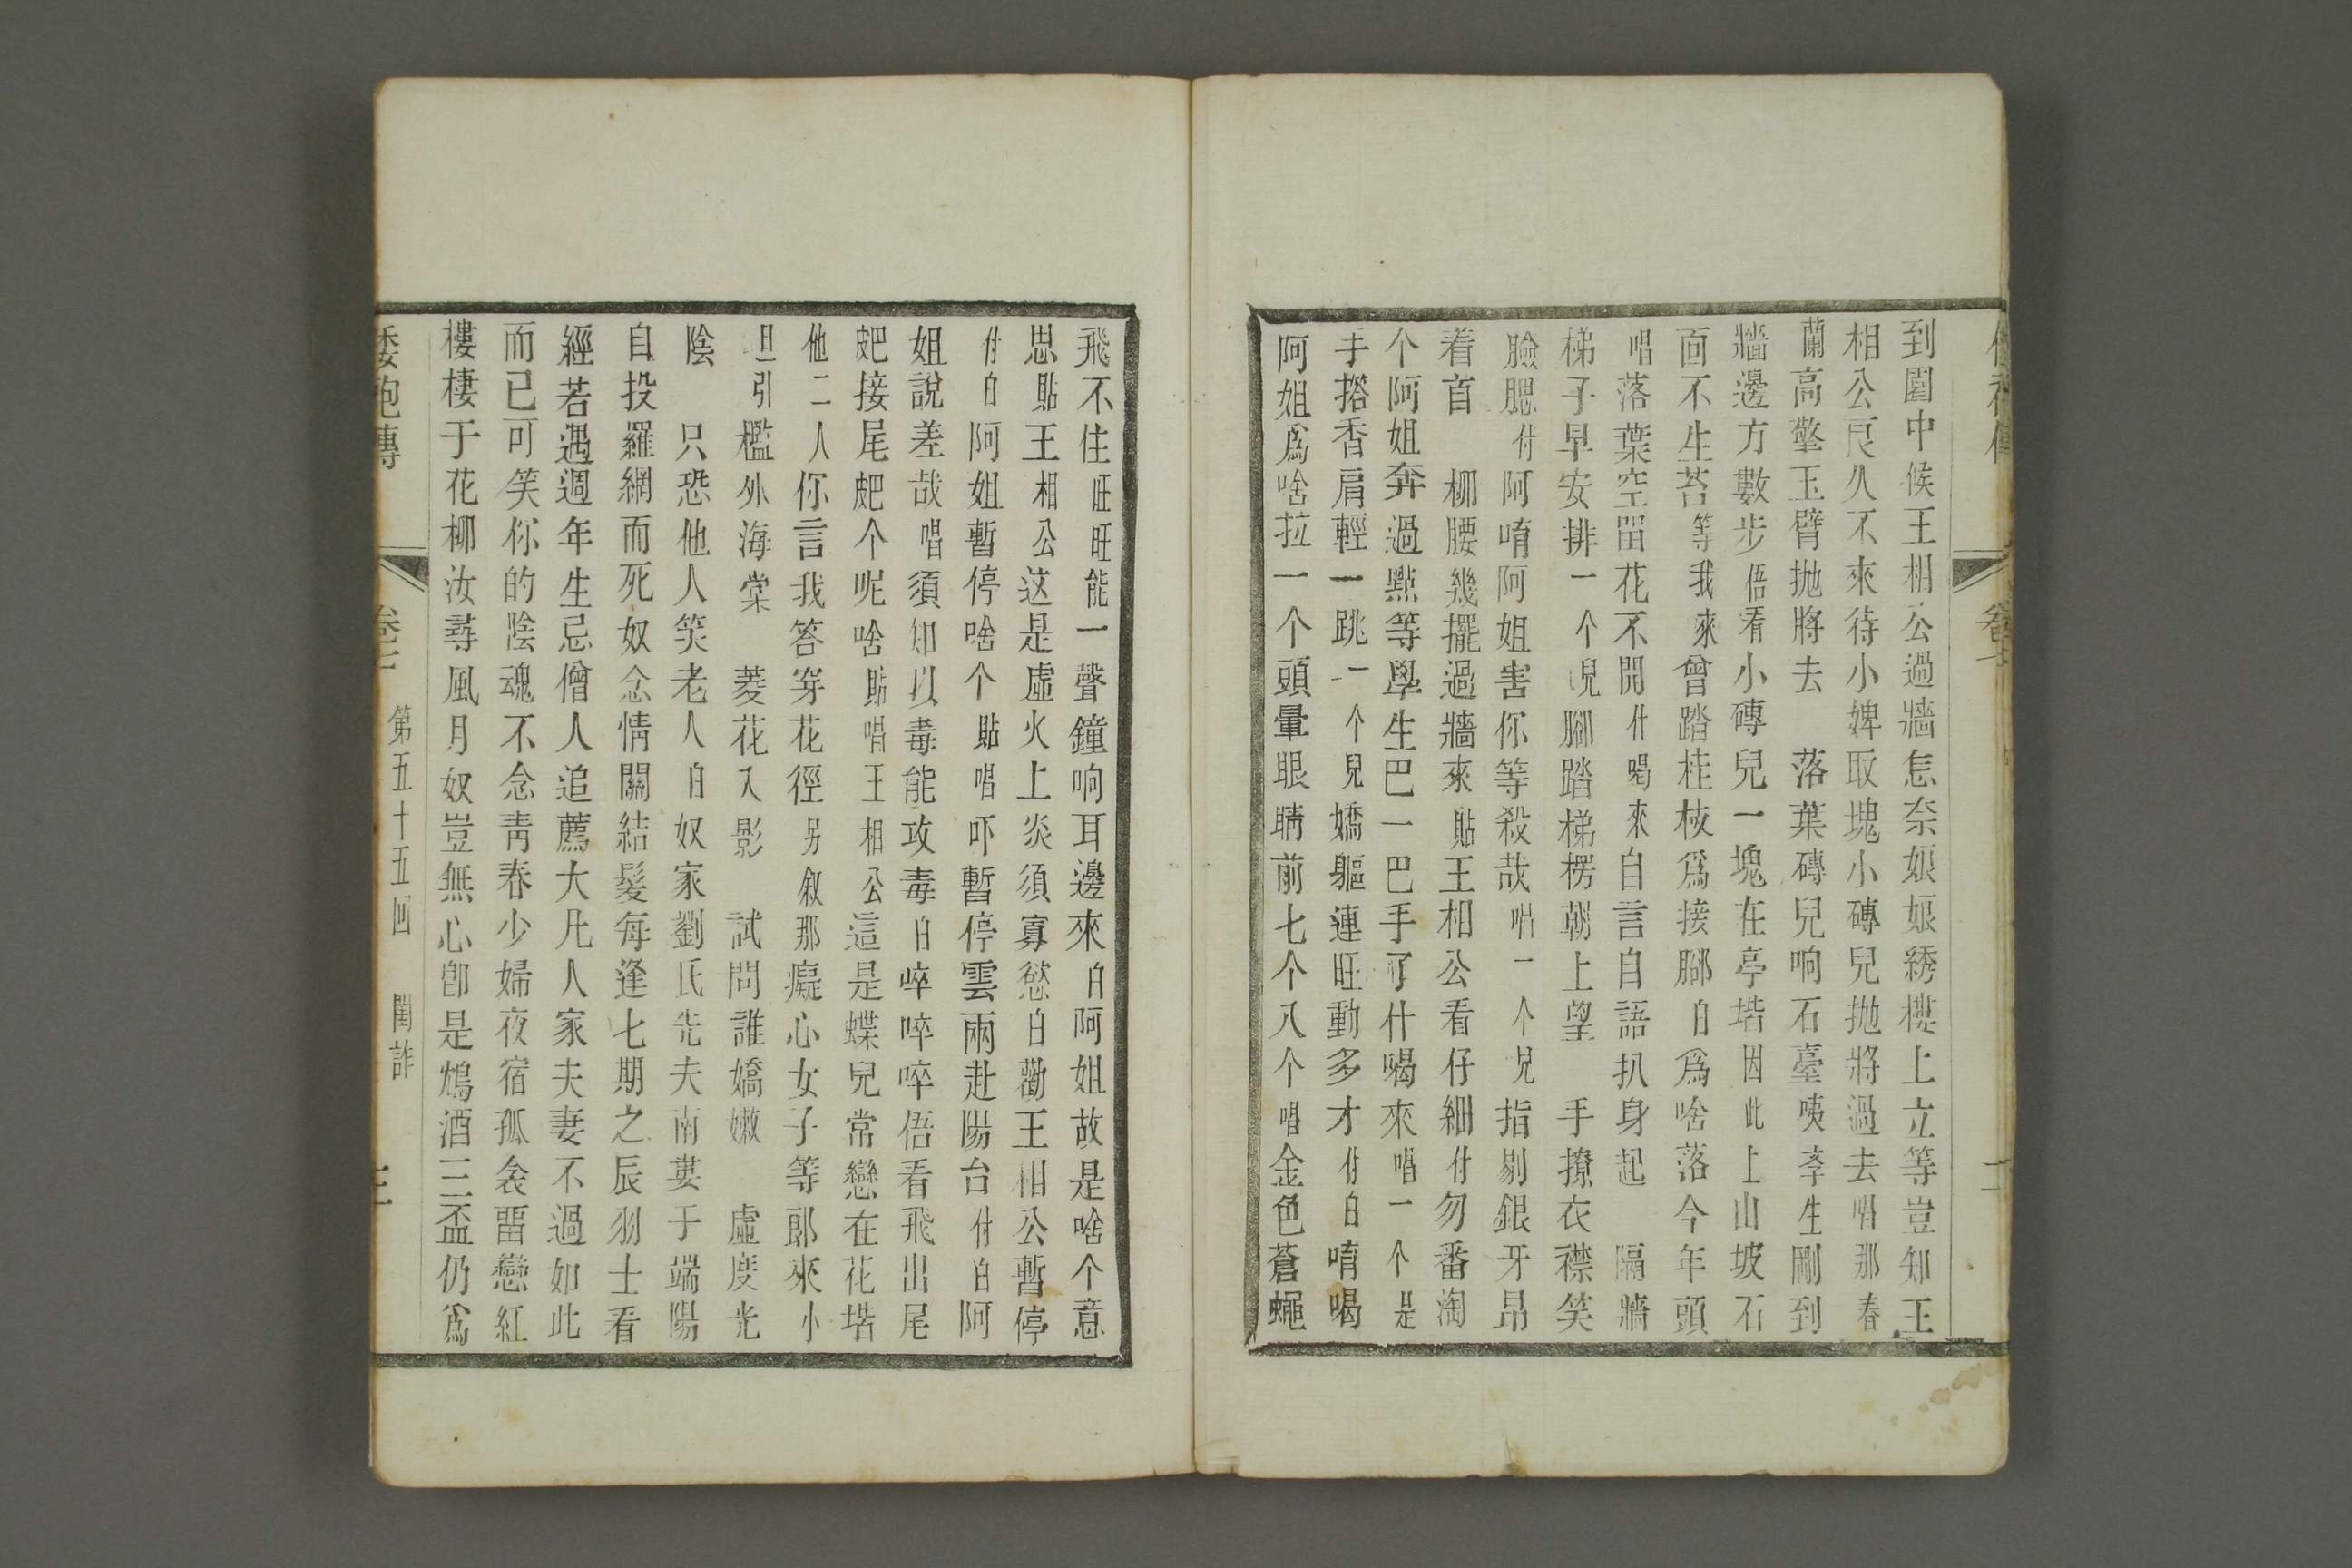 到園中候王相公過牆怎奈娘娘綉樓上立等豈知王
相公良久不來待小婢取塊小磚兒抛將過去唱那春
蘭高擎玉臂抛將去　落葉磚兒响石臺咦李生剛到
牆邊方數步悟看小磚兒一塊在亭堦因此上山坡石
面不生苔等我來曾踏桂枝爲接腳白爲啥落今年頭
唱落葉空畱花不開付喝來自言自語扒身起　隔牆
梯子早安排一个皃腳踏梯楞朝上望　手撩衣襟笑
臉腮付阿唷阿姐害你等殺哉唱一个皃指剔銀牙昂
着首　柳腰幾擺過牆來貼王相公看仔細付勿番淘
个阿姐奔過點等學生巴一巴手了什喝來唱一个是
手搭香肩輕一跳一个兒嬌軀連旺動多才付白唷喝
阿姐爲啥拉一个頭暈眼睛前七个八个唱金色蒼蠅
飛不住旺旺能一聲鐘响耳邊來白阿姐故是啥个意
思貼王相公这是虛火上炎須寡慾白勸王相公暫停
付白阿姐暫停啥个貼唱吓暫停雲兩赴陽台付白阿
姐說差哉唱須知以毒能攻毒白啐啐啐悟看飛出尾
䎱接尾䎱个呢啥貼唱王相公這是蝶兒常戀在花堦
他二人你言我答穿花徑另叙那癡心女子等郎來小
旦引檻外海棠　菱花入影　試問誰嬌嫩　虛度光
陰　只恐他人笑老人白奴家劉氏先夫南蔞于端陽
自投羅網而死奴念情關結髮每逢七期之辰羽士看
經若遇週年生忌僧人追薦大凡人家夫妻不過如此
而已可笑你的陰魂不念靑春少婦夜宿孤衾畱戀紅
樓棲于花柳汝尋風月奴豈無心卽是鴆酒三盃仍爲
倭袍傳　卷七　第五十五回　閨詐